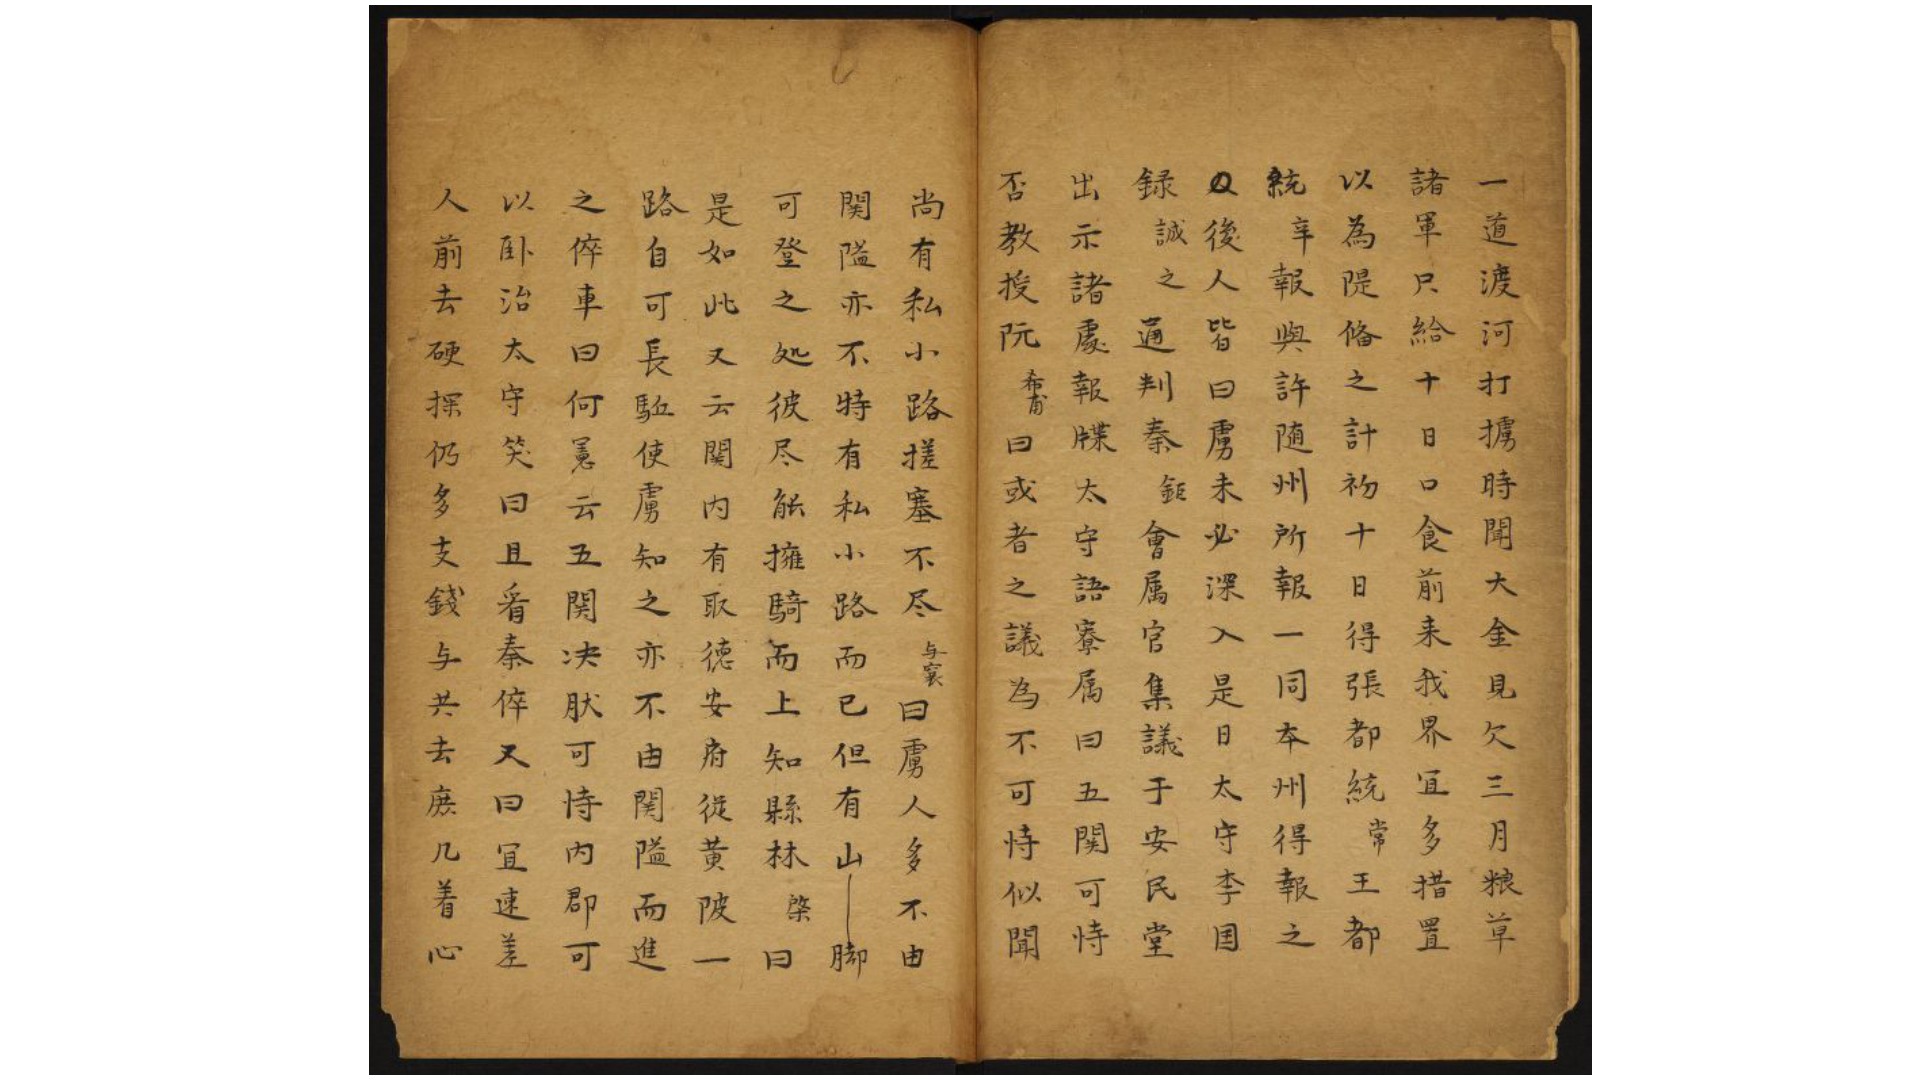 一道渡河打擄時聞大金見欠三月粮草
諸軍只給十日口食前来我界宜多措置
以為隄俻之計初十日得張都統常王都
統辛報與許随州所報一同本州得報之
後人皆曰虜未必深入是日太守李国
録誠之通判秦鉅會属官集議于安民堂
出示諸處報牒太守語寮属曰五関可恃
否教授阮希甫曰或者之議為不可恃似聞
尚有私小路搓塞不尽与褱曰虜人多不由
関隘亦不特有私小路而已但有山脚
可登之処彼尽能擁騎而上知縣林棨曰
是如此又云関内有取德安府従黄陂一
路自可長駈使虜知之亦不由関隘而進
之倅車曰何㥯云五関决肰可恃内郡可
以卧治太守笑曰且看秦倅又曰宜速差
人前去硬探仍多支錢与共去庻几着心